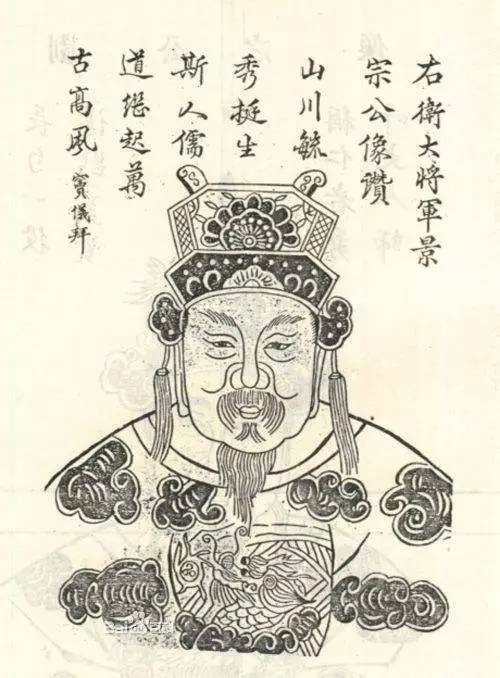 右衛大將軍景
宗公像讚
山川毓
秀挺生
斯人儒
道繼起萬
古高風 竇儀拜